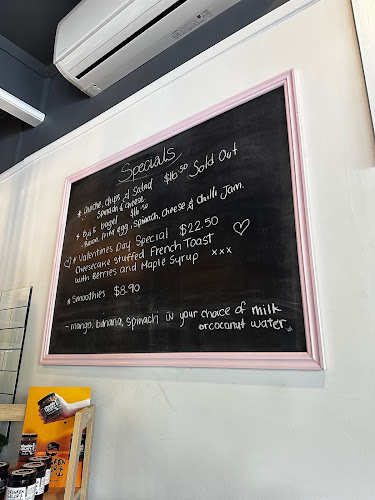 Specials
* Quiche, chips, & Salad $16.50 Sold Out
- Spinach & cheese
* B&E bagel $16.50
- Bacon, fried egg, spinach, cheese & chilli Jam.
* Valentines Day Special $22.50
Cheesecake Stuffed French Toast
with Berries and Maple Syrup xxx
* Smoothies $8.90
- mango, banana, spinach in your choice of milk
or coconut water